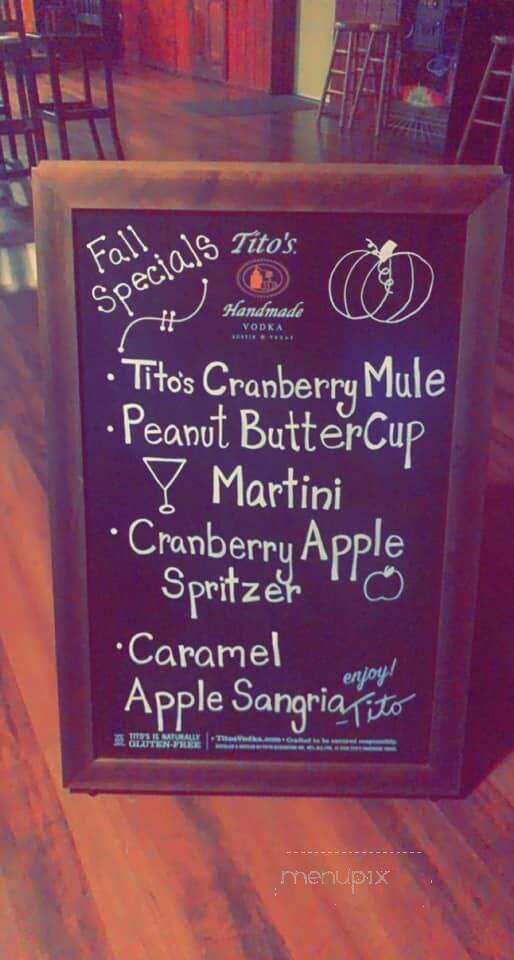 Fall
Specials
Tito's.
Handmade
VODKA
AUSTIN TEXAS
• Tito's Cranberry Mule
• Peanut Butter Cup
Martini
• Cranberry Apple
Spritzer
• Caramel
Apple Sangria
enjoy!
-Tito
TITO'S IS NATURALLY
GLUTEN-FREE
• TitosVodka.com • Crafted to be savored responsibly.
menupix